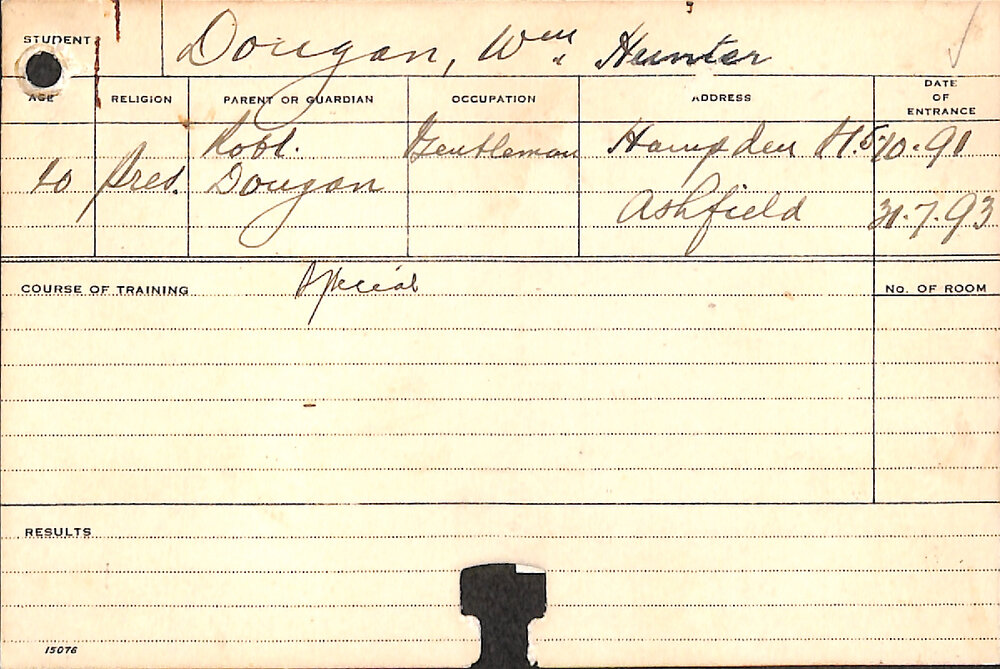 STUDENT Dougan, Wm Hunter
AGE RELIGION PARENT OR GUARDIAN OCCUPATION ADDRESS DATE OF ENTRANCE
Robt. Gentleman Hampden 5.10.91
Pres. Dougan
Ashfield 31.7.93
COURSE OF TRAINING Special No. OF ROOM
RESULTS
15076